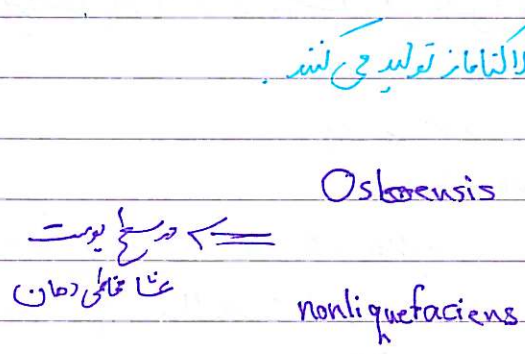 لاکتاماز تولید می کنند .
Osloensis
=> در سطح پوست
غشا مخاطی دهان
nonliquefaciens